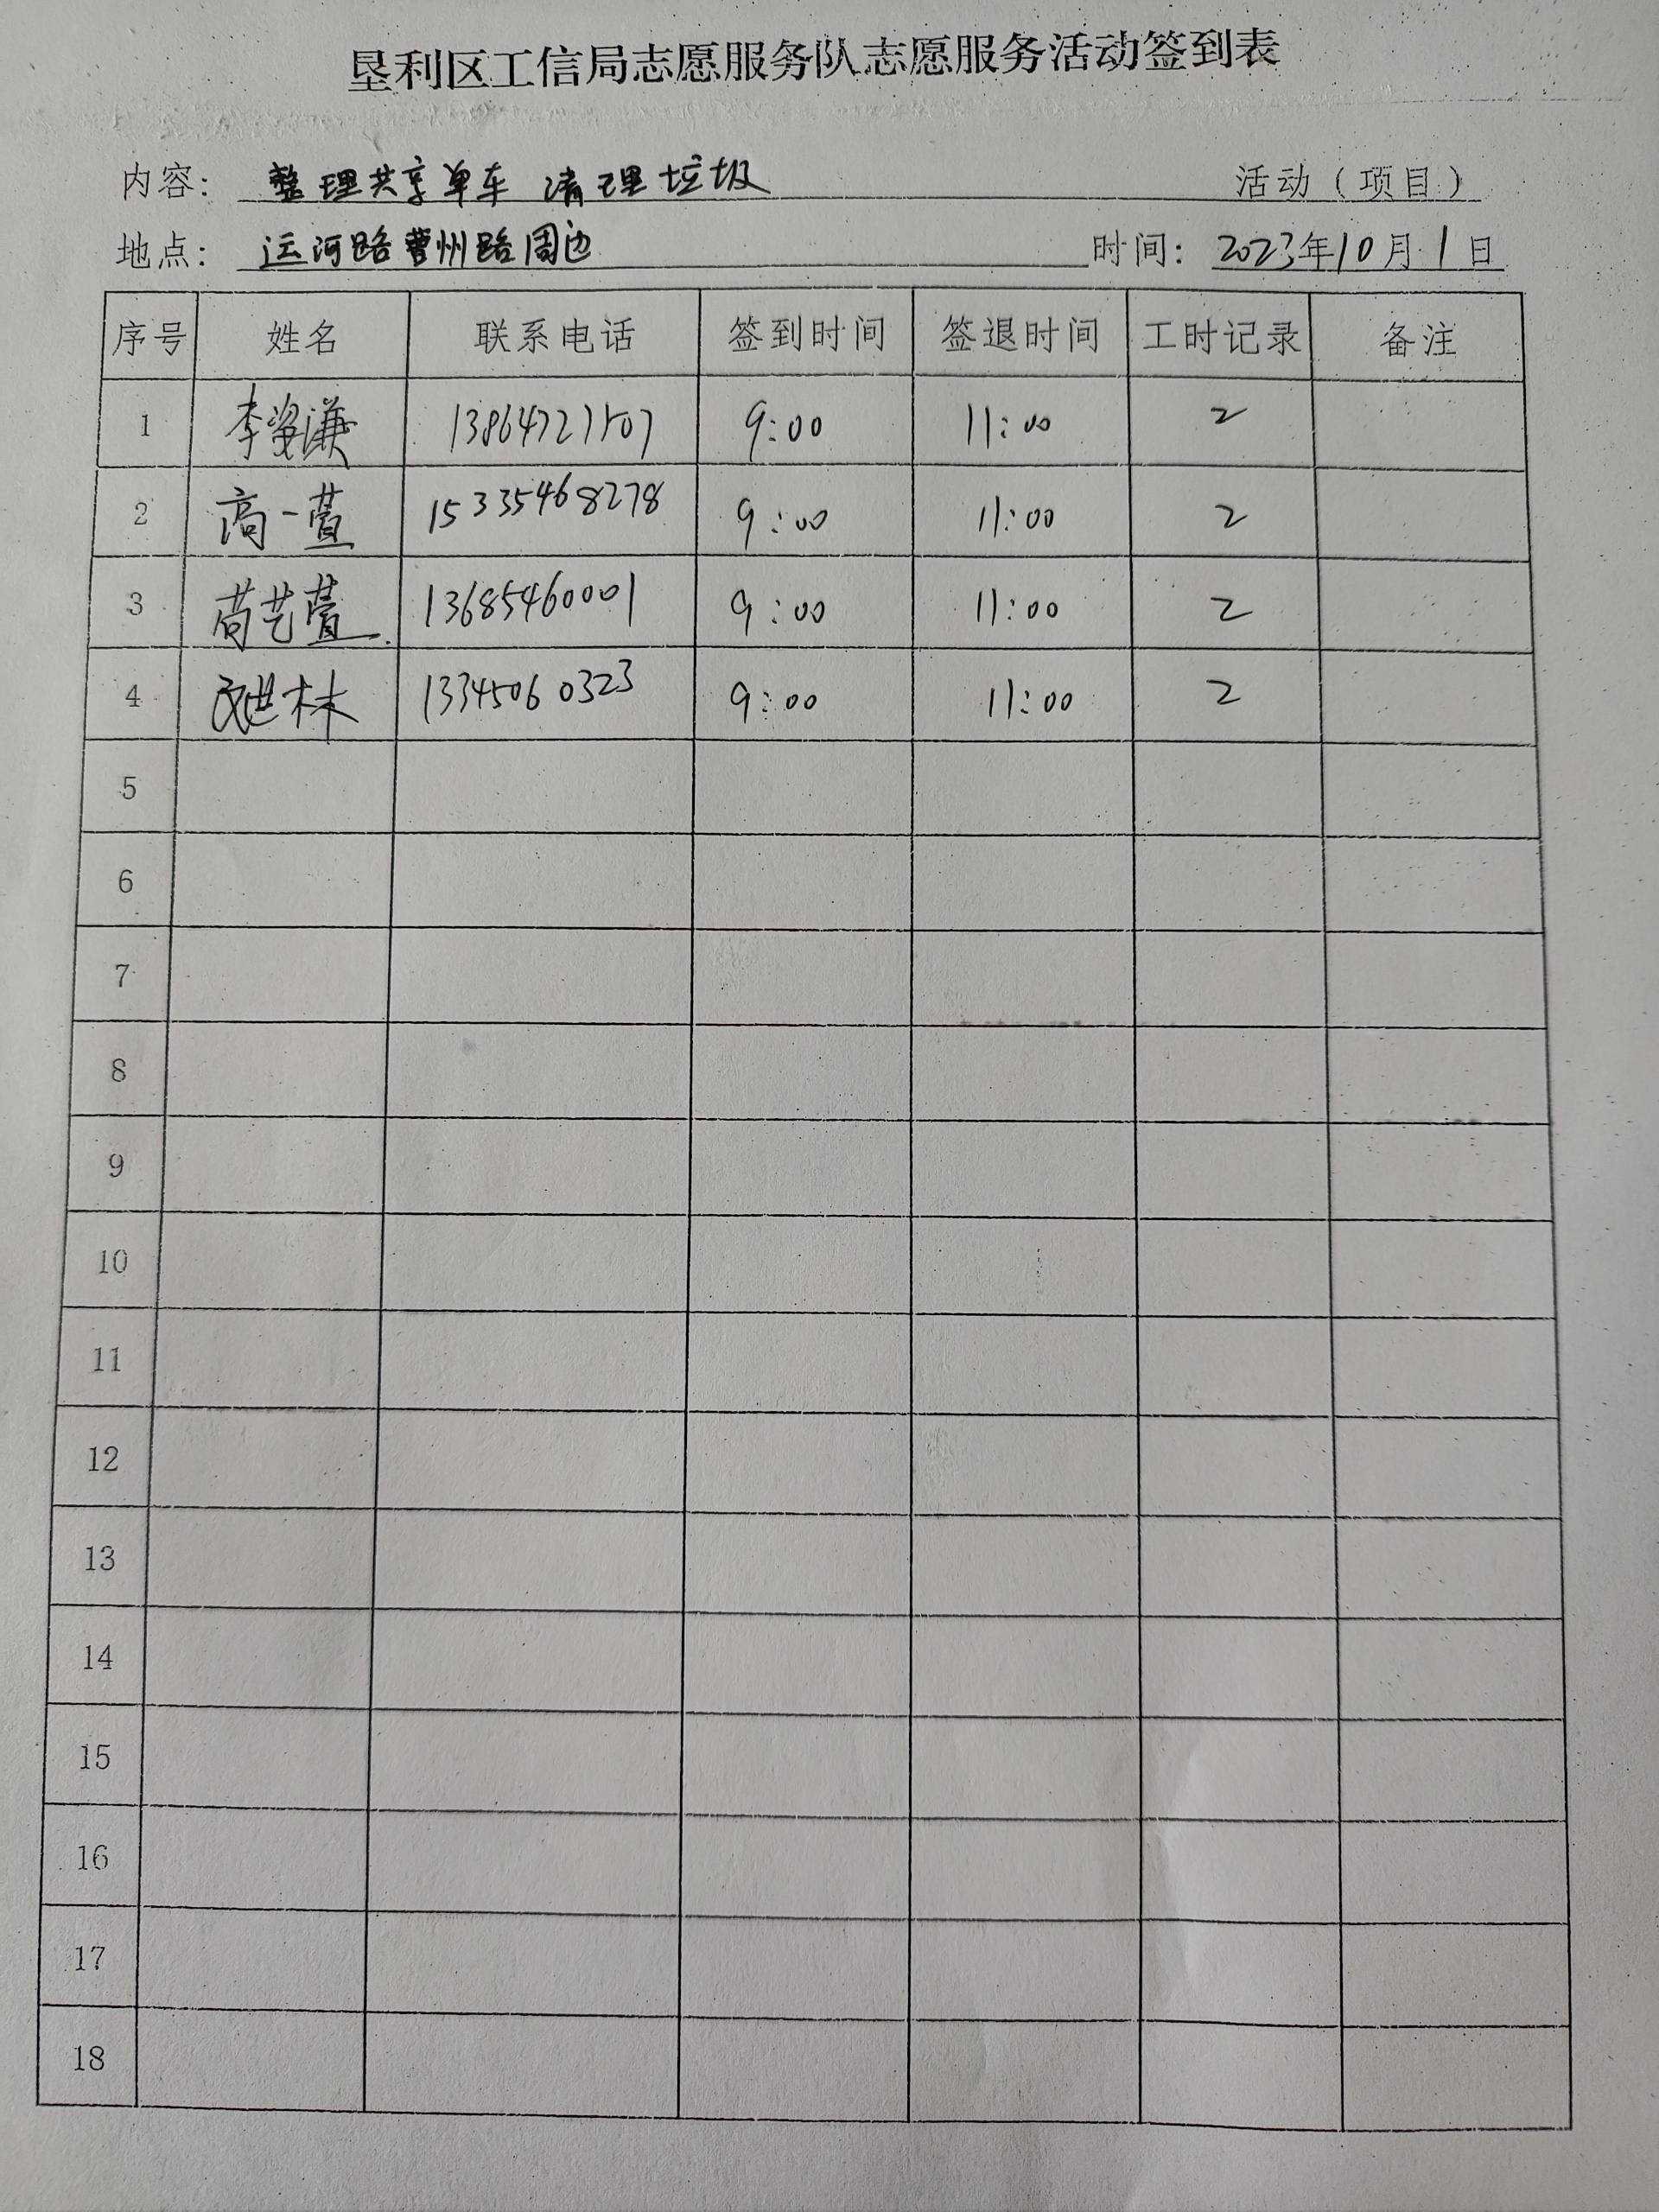 垦利区工信局志愿服务队志愿服务活动签到表
内容: 整理共享单车 清理垃圾 活动(项目)
地点: 运河路曹州路周边 时间: 2023年10月1日
序号 姓名 联系电话 签到时间 签退时间 工时记录 备注
1 李姿谦 13864727507 9:00 11:00 2
2 高一萱 15335468278 9:00 11:00 2
3 苟艺萱 13685460001 9:00 11:00 2
4 林 13345060323 9:00 11:00 2
5
6
7
8
9
10
11
12
13
14
15
16
17
18